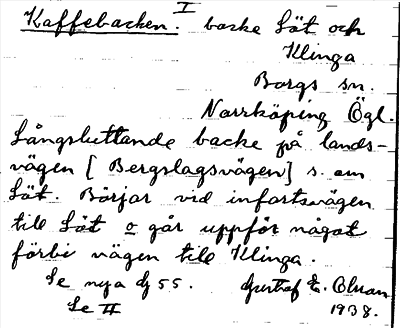 I
Kaffebacken. backe Löt och
Klinga
Borgs sn.
Norrköping Ögl.
Långsluttande backe på lands-
vägen [Bergslagsvägen] s. om
Löt. Börjar vid infartsvägen
till Löt o går uppför något
förbi vägen till Klinga.
Se nya dj 55. Gustaf E. Olsson
Se II 1938.